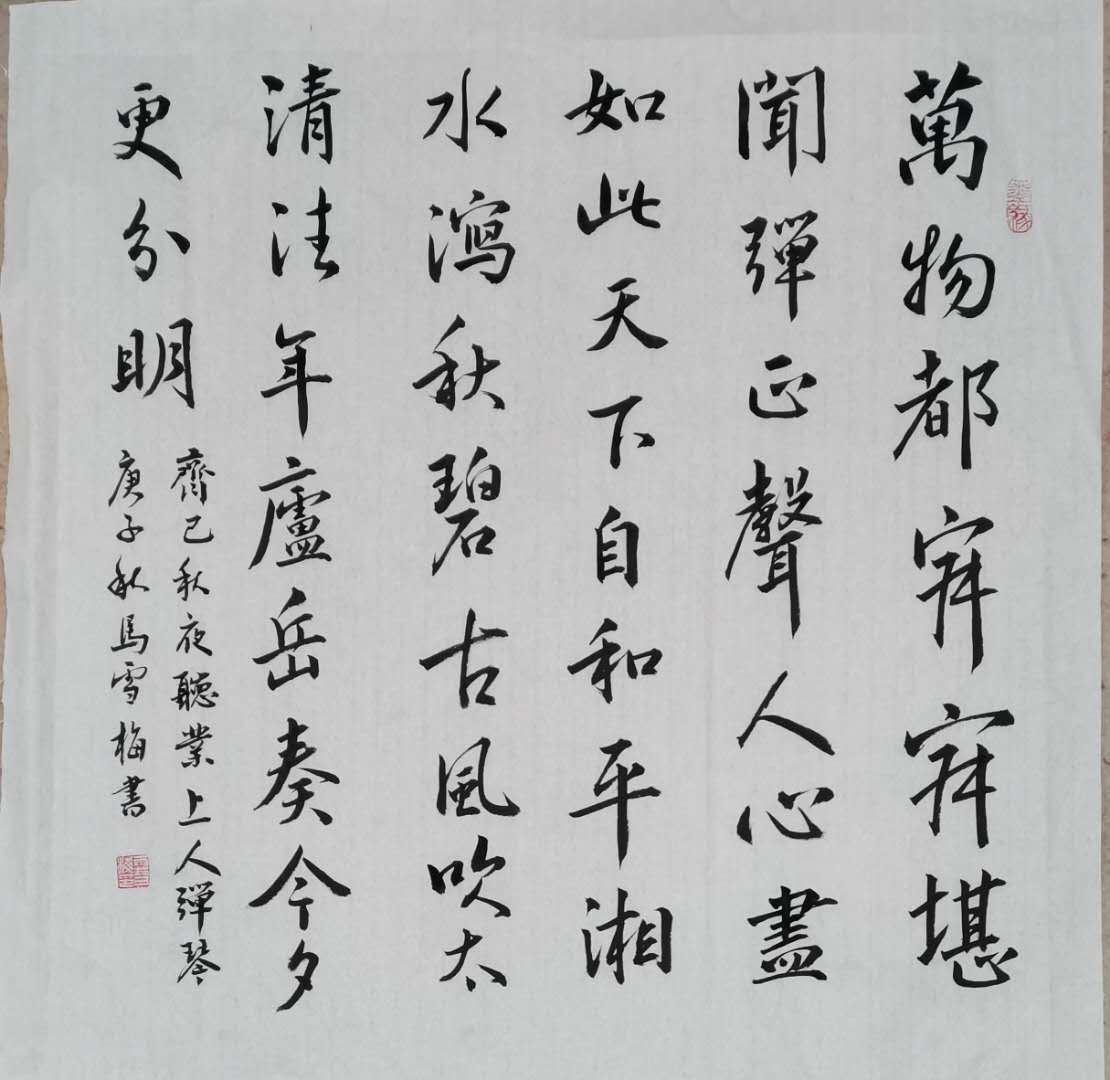 萬物都寂寂堪
聞彈正聲人心盡
如此天下自和平湘
水瀉秋碧古風吹太
清往年廬岳奏今夕
更分明
齊己秋夜聽業上人彈琴
庚子秋馬雪梅書